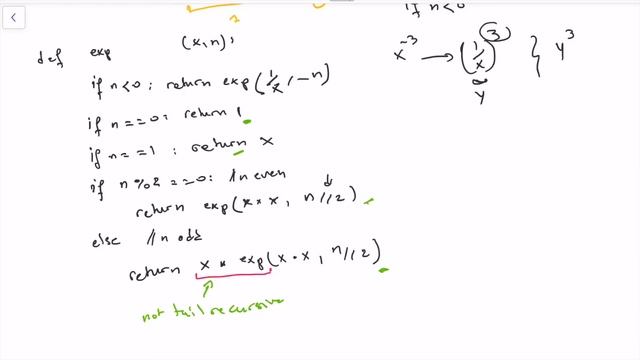 2
if n<0
def exp (x,n):
x^-3 → (1/x)^3 } y^3
y
if n<0: return exp(1/x, -n)
if n==0: return 1
if n==1: return x
if n%2==0: //n even
return exp(x*x, n//2)
else //n odd
return x * exp(x*x, n//2)
not tail recursive